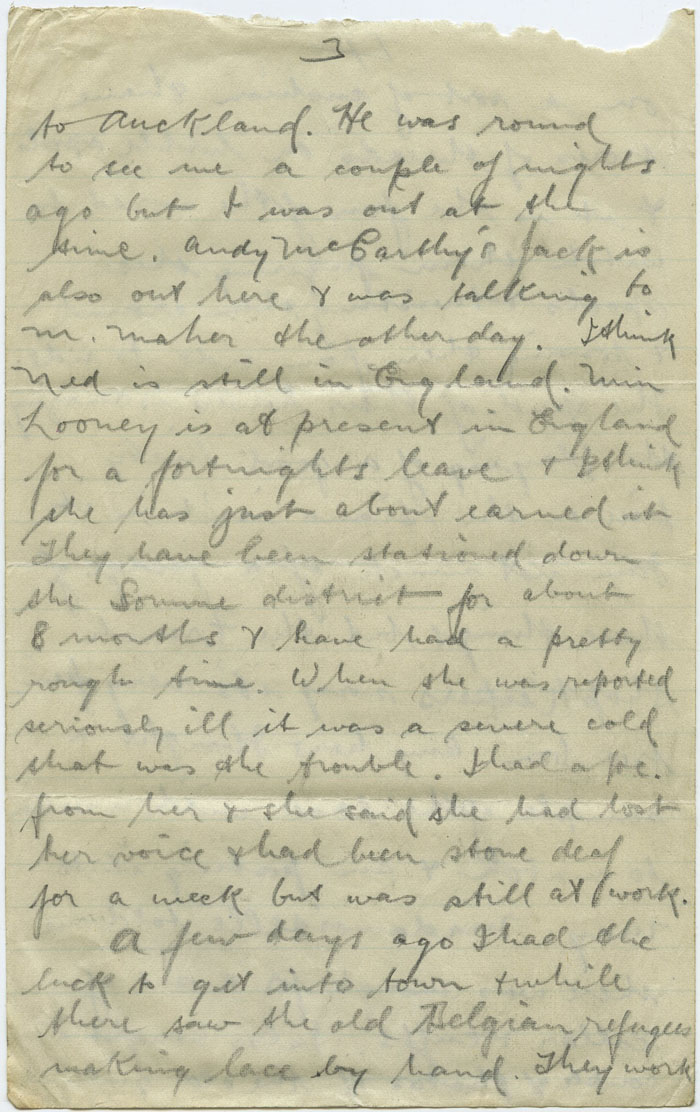 3
to Auckland. He was round
to see me a couple of nights
ago but I was out at the
time. Andy McCarthy's Jack is
also out here & was talking to
M. Maher the other day. I think
Ned is still in England. Min
Looney is at present in England
for a fortnights leave & I think
she has just about earned it
They have been stationed down
the Somme district for about
8 months & have had a pretty
rough time. When she was reported
seriously ill it was a severe cold
that was the trouble. I had a p.c.
from her & she said she had lost
her voice & had been stone deaf
for a week but was still at work.
A few days ago I had the
luck to get into town & while
there saw the old Belgian refugees
making lace by hand. They work